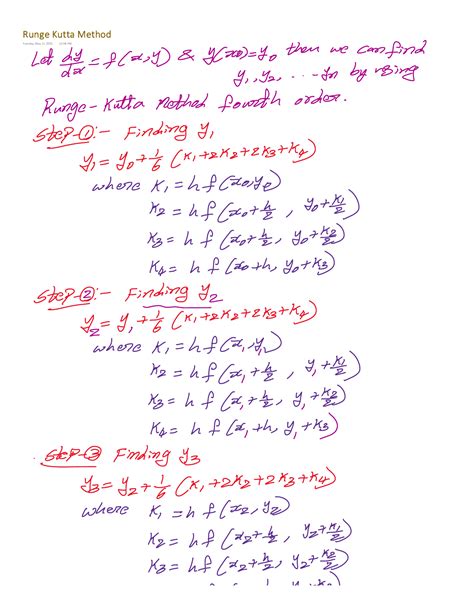 Runge Kutta Method
Let dy/dx = f(x,y) & y(x0)=y0 then we can find
y1, y2, ... yn by using
Runge-Kutta Method fourth order.
Step-①:- Finding y1
y1 = y0 + 1/6 (K1+2K2+2K3+K4)
where K1 = h f(x0,y0)
K2 = h f(x0+h/2, y0+K1/2)
K3 = h f(x0+h/2, y0+K2/2)
K4 = h f(x0+h, y0+K3)
Step-②:- Finding y2
y2 = y1 + 1/6 (K1+2K2+2K3+K4)
where K1 = h f(x1,y1)
K2 = h f(x1+h/2, y1+K1/2)
K3 = h f(x1+h/2, y1+K2/2)
K4 = h f(x1+h, y1+K3)
Step-③ Finding y3
y3 = y2 + 1/6 (K1+2K2+2K3+K4)
where K1 = h f(x2, y2)
K2 = h f(x2+h/2, y2+K1/2)
K3 = h f(x2+h/2, y2+K2/2)